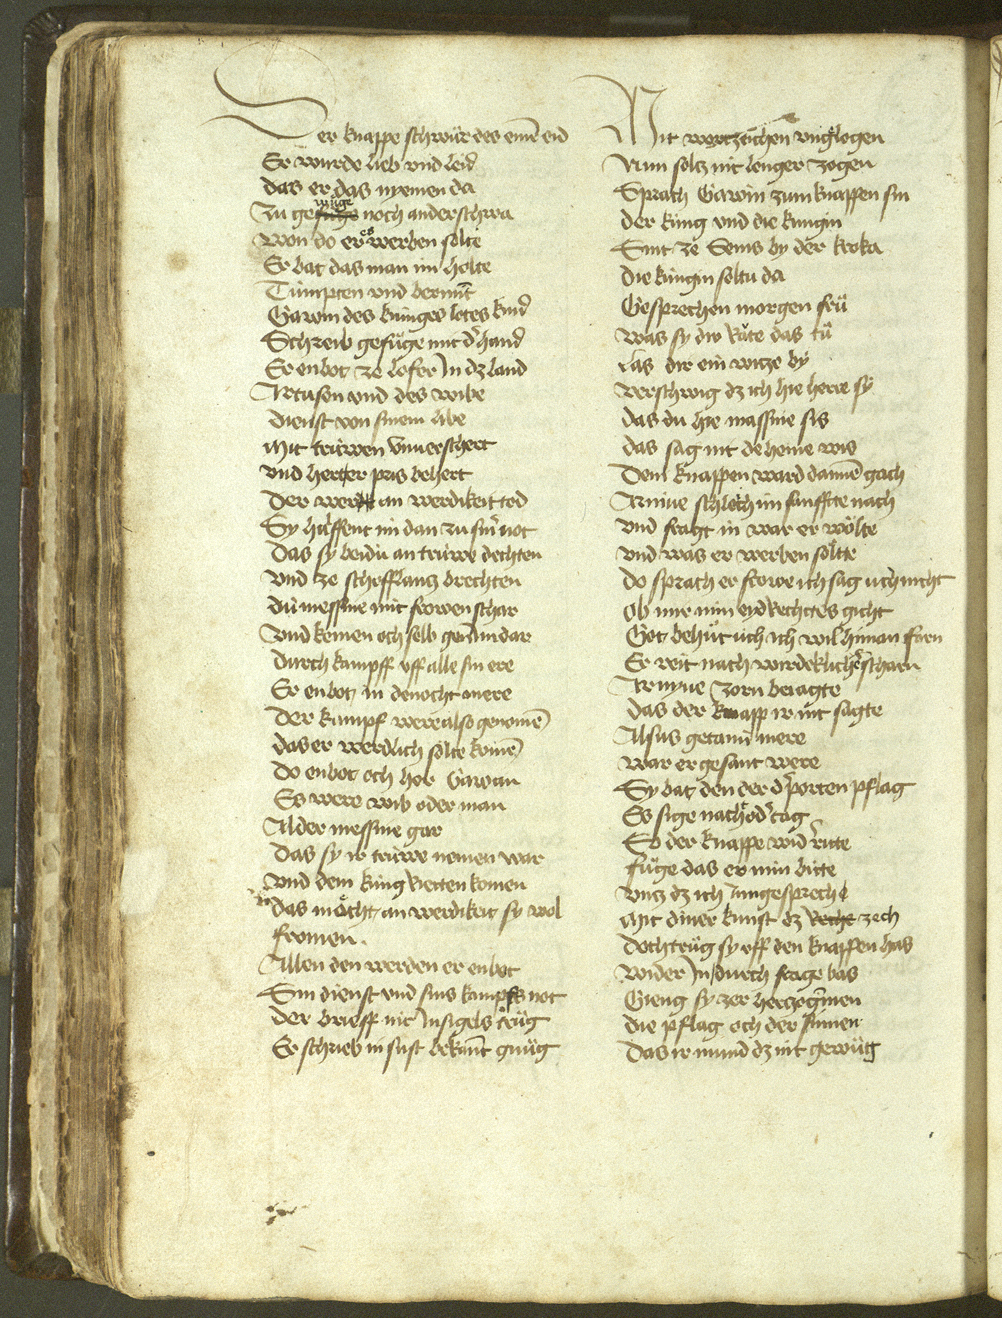 Der knappe schwůr des einē eid
Er wurde lieb vnd leid
das er das nyemen da
Zu gewüge noch anderschwa
Won do er es werben sölte
Er bat das man im holte
Timpten vnd bermit
Gawin des kunges lotes kind
Schreib gefůge mit dˀ hand
Er enbot ze lofer Jn dz land
Artuson vnd des wibe
dienst von sinem libe
Mit trüwen vnuerschert
vnd hetter pris behert
Der wer an werdikeit tod
Sy hulffent im dan zu sinˀ not
Das sy beidu an trüwe dechten
Vnd ze schofflanz brechten
du messnie mit frowen schar
Vnd kemen och selb gen im dar
durch kampff vff alle sin ere
Er enbot in denocht mere
Der kampf were also genomē
das er werdlich sölte komē
Do enbot och her Gawan
Es were wib oder man
Alder messnie gar
Das sy ir trüwe nemen war
Vnd dem kung rietten komen
das möcht an werdikeit sy wol
fromen.
Allen den werden er enbot
Sin dienst vnd sins kampfs not
der brieff nit Jnsigels trůg
Er schrieb in sust bekant gnůg
Mit wortzeichen vnglogen
Nun soltz nit lenger zogen
Sprach Gawin zum knappen sin
der küng vnd die kungin
Sint ze Sems by der kroka
die küngin soltu da
Gesprechen morgen frü
was sy diw rate das tü
Las dir ein witze by
verschwig dz ich hie herre sy
das du hie massnie sis
das sag nit deheine wis
Dem knappen ward dannē gach
Arniue schleich im sanffte nach
vnd fragt in war er wölte
vnd was er werben sölte
do sprach er frowe ich sag uch nicht
ob mir min eyd rechtes gicht
Got behüt uch ich wil hinan farn
Er reit nach wirdeklichē scharn
Arnyue zorn beiagte
das der knapp ir nit sagte
Alsus getanú mere
war er gesant were
Sy bat den der dˀ porten pflag
Es sige nacht odˀ tag
So der knappe widˀ rite
füge das er min bitte
Vnz dz ich Jn gespreche
Mit diner kunst dz zech
Doch trůg sy vff den knappen has
Wider Jn durch frage bas
Gieng sy zer herczoginen
die pflag och der sinnen
Das ir mund dz nit gewüg